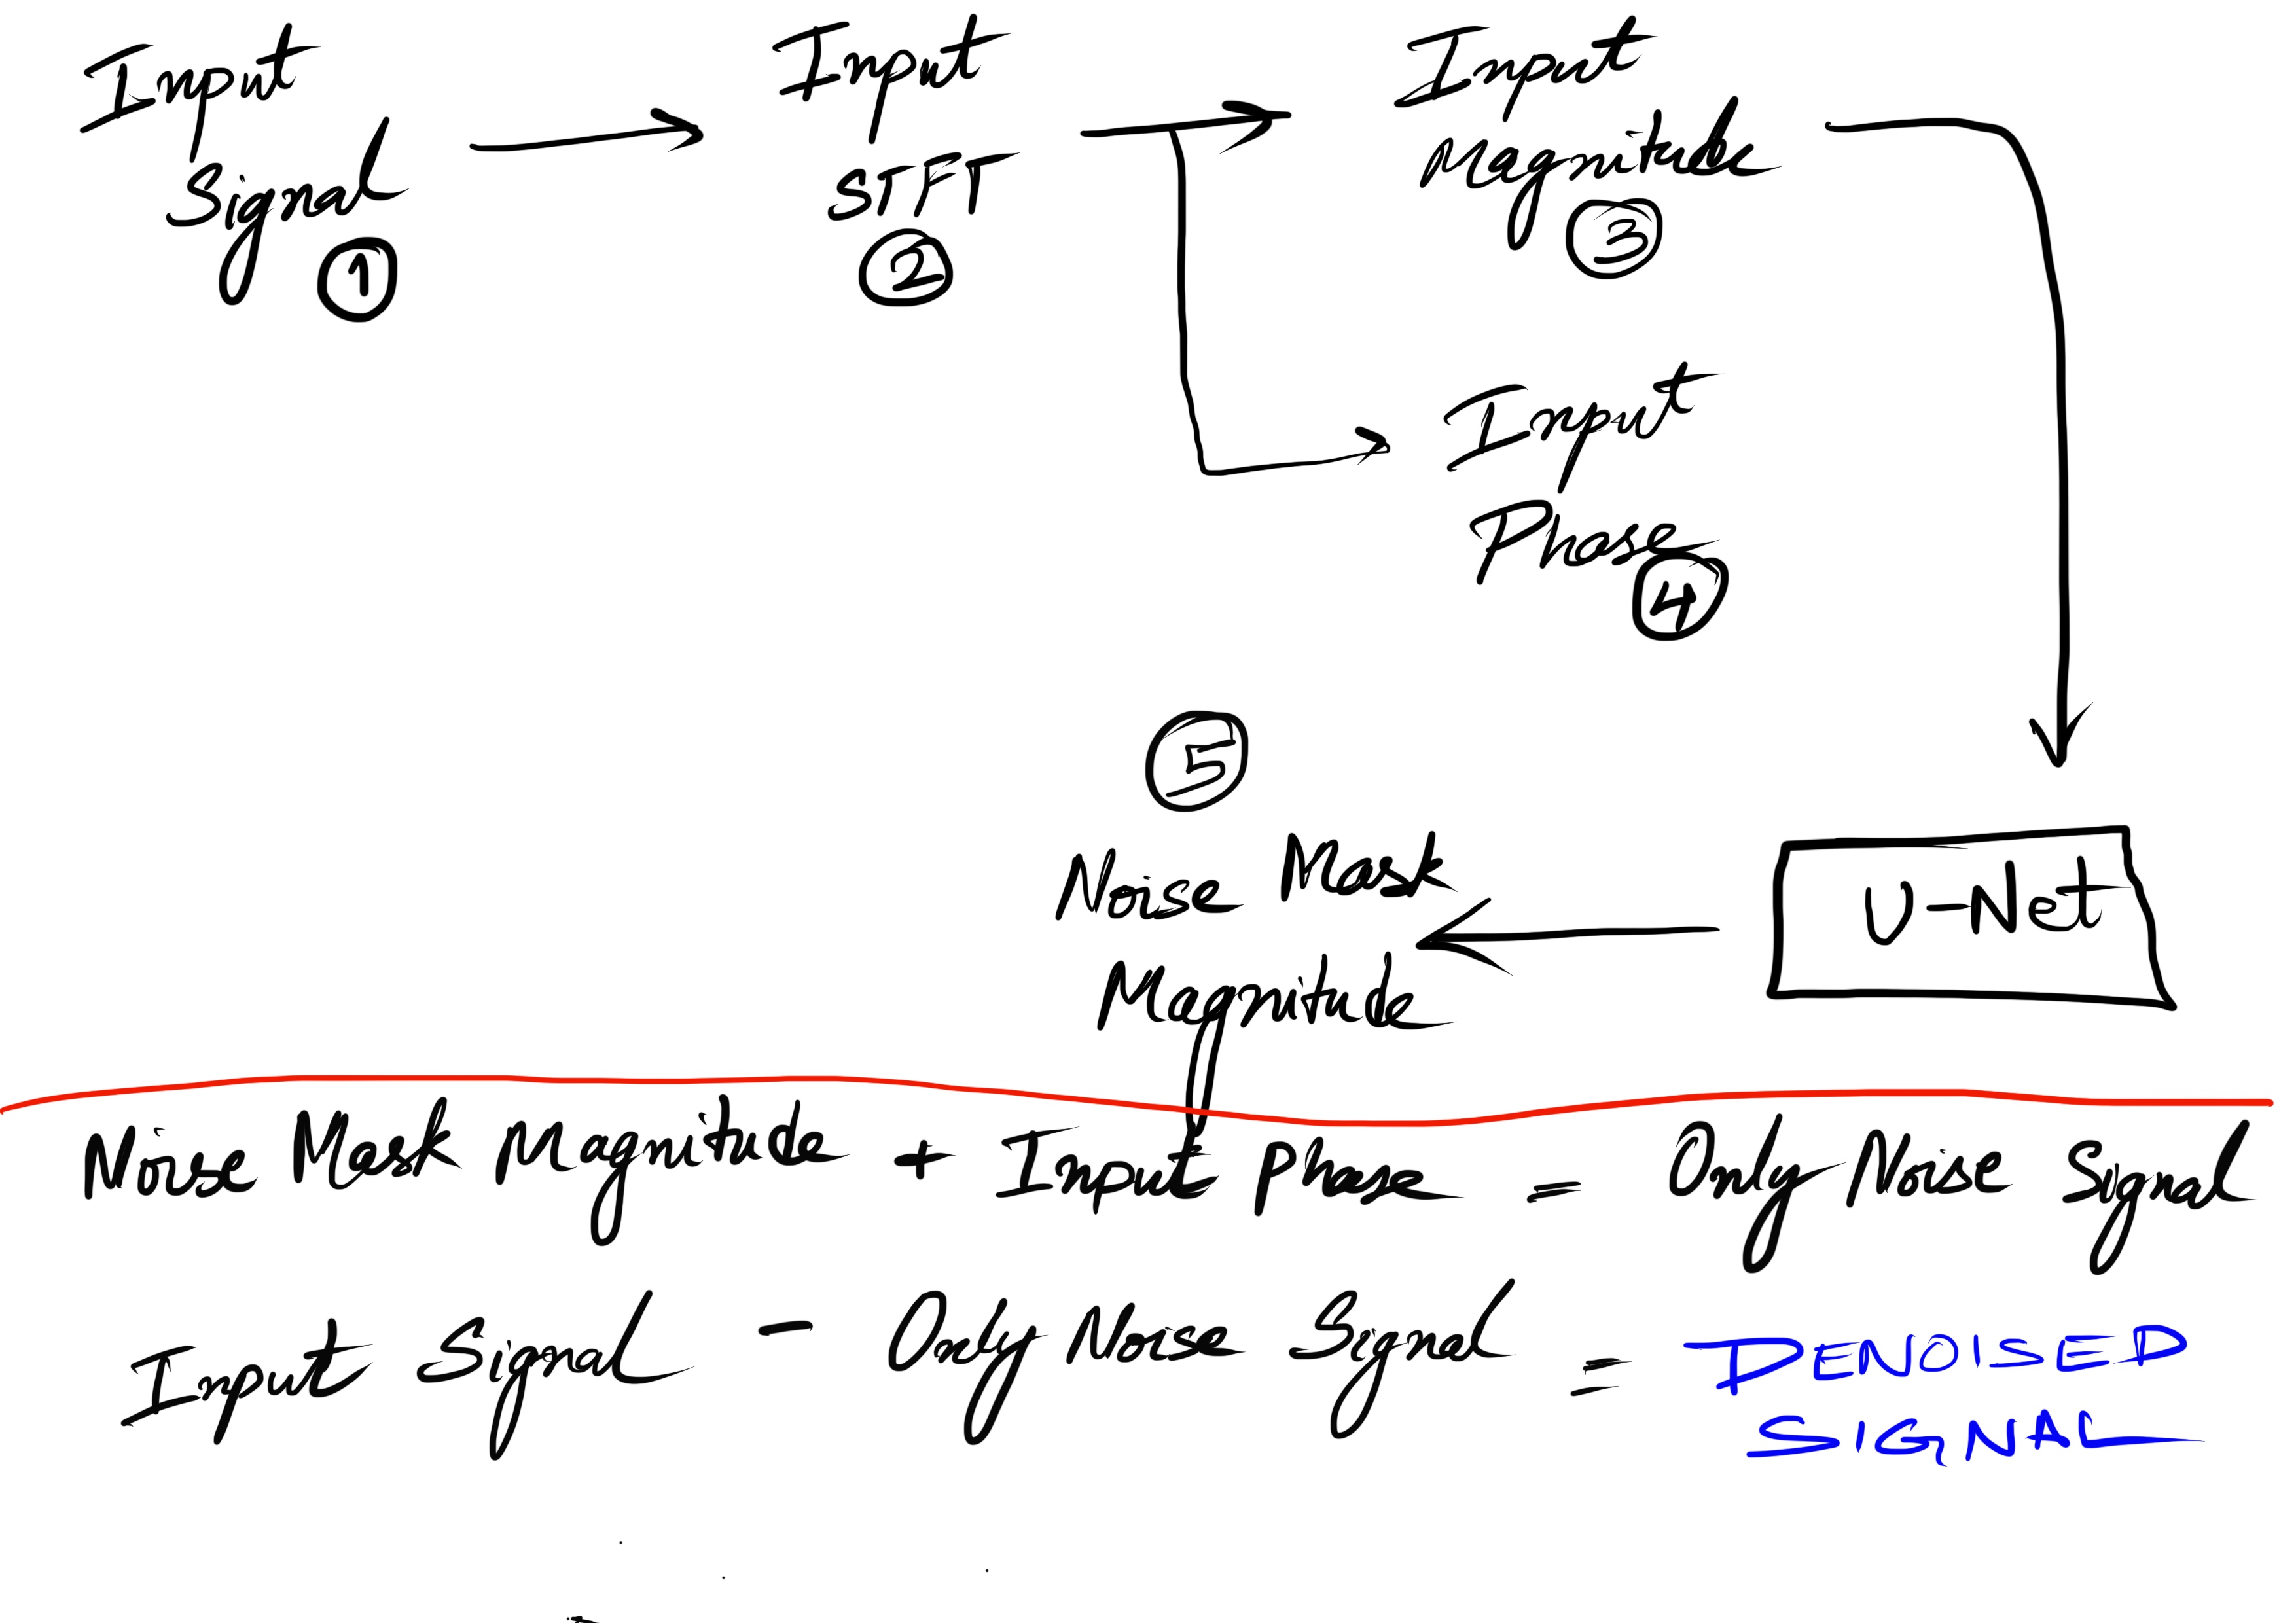 Input
Signal
1
Input
STFT
2
Input
Magnitude
3
Input
Phase
4
5
Noise Mask
Magnitude
U-Net
Noise Mask Magnitude + Input Phase = Only Noise Signal
Input Signal - Only Noise Signal = DENOISED
SIGNAL